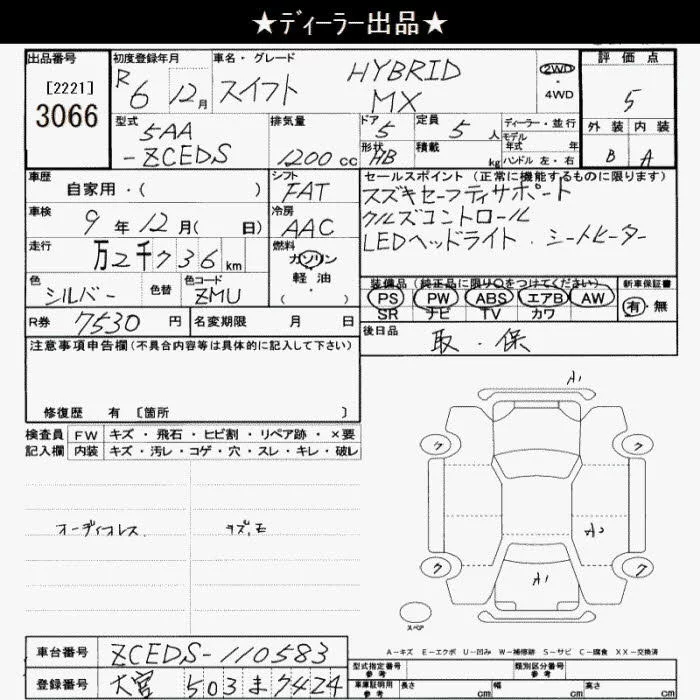 ★ディーラー出品★
出品番号
[2221]
3066
初度登録年月
R6 12月
車名・グレード
スイフト HYBRID MX
2WD・4WD
評価点
5
外装 内装
B A
型式
5AA-ZCEDS
排気量
1200cc
ドア
5
形状
HB
定員
5人
積載
kg
ディーラー・並行
モデル年式 年
ハンドル 左・右
車歴
自家用・( )
シフト
FAT
車検
9年12月( 日)
冷房
AAC
走行
万2千736km
燃料
ガソリン
軽油
( )
色
シルバー
色替
色コード
ZMU
R券
7530円
名変期限 月 日
セールスポイント(正常に機能するものに限ります)
スズキセーフティサポート
クルズコントロール
LEDヘッドライト・シートヒーター
装備品(純正品に限り○をつけてください)
PS PW ABS エアB AW
SR ナビ TV カワ
新車保証書
有・無
後日品
取・保
注意事項申告欄(不具合内容等は具体的に記入して下さい)
修復歴 有 〔箇所 〕
検査員 FW キズ・飛石・ヒビ割・リペア跡・×要
記入欄 内装 キズ・汚レ・コゲ・穴・スレ・キレ・破レ
オーディオレス
A1
ワ ワ
A1
ワ ワ
スペア
A-キズ E-エクボ U-凹み W-補修跡 S-サビ C-腐食 XX-交換済
車台番号
ZCEDS-110583
登録番号
大宮 503 ま 7424
型式指定番号 参考
類別区分番号 参考
車庫証明用 参考
長さ cm 幅 cm 高さ cm